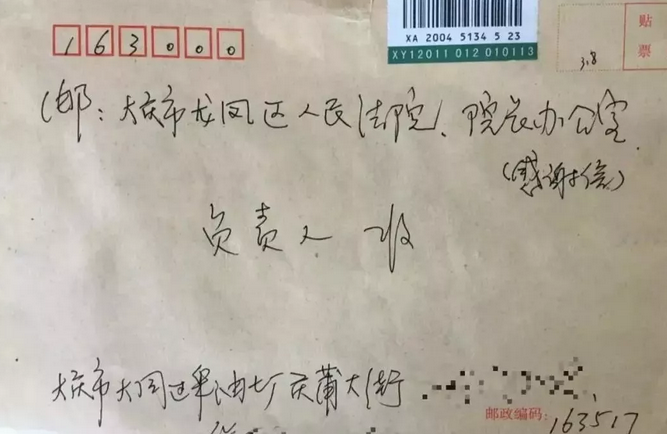 163000
XA 2004 5134 5 23
XY12011 012 010113
3.8
贴
票
(邮:大庆市龙凤区人民法院、院长办公室
(感谢信)
负责人 收
大庆市大同区采油七厂庆葡大街
邮政编码:163517